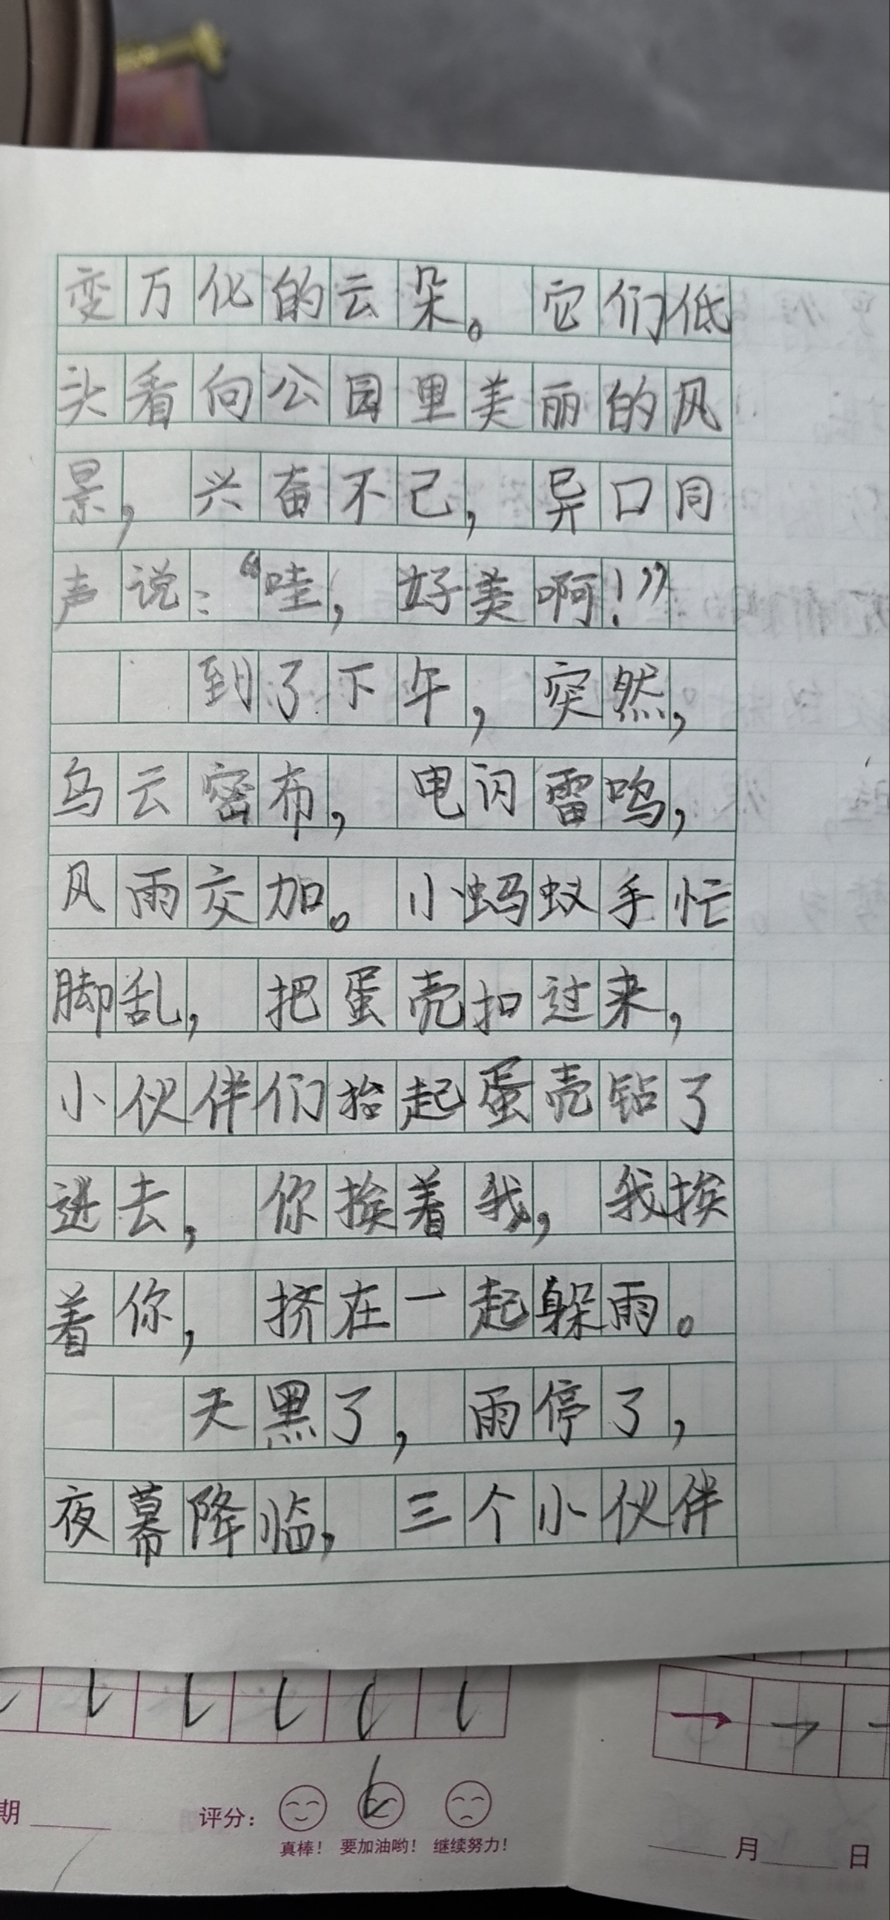 变万化的云朵。它们低
头看向公园里美丽的风
景，兴奋不己，异口同
声说：“哇，好美啊！”
到了下午，突然，
乌云密布，电闪雷鸣，
风雨交加。小蚂蚁手忙
脚乱，把蛋壳扣过来，
小伙伴们抬起蛋壳钻了
进去，你挨着我，我挨
着你，挤在一起躲雨。
天黑了，雨停了，
夜幕降临，三个小伙伴
期
评分：
真棒！ 要加油哟！ 继续努力！
月 日